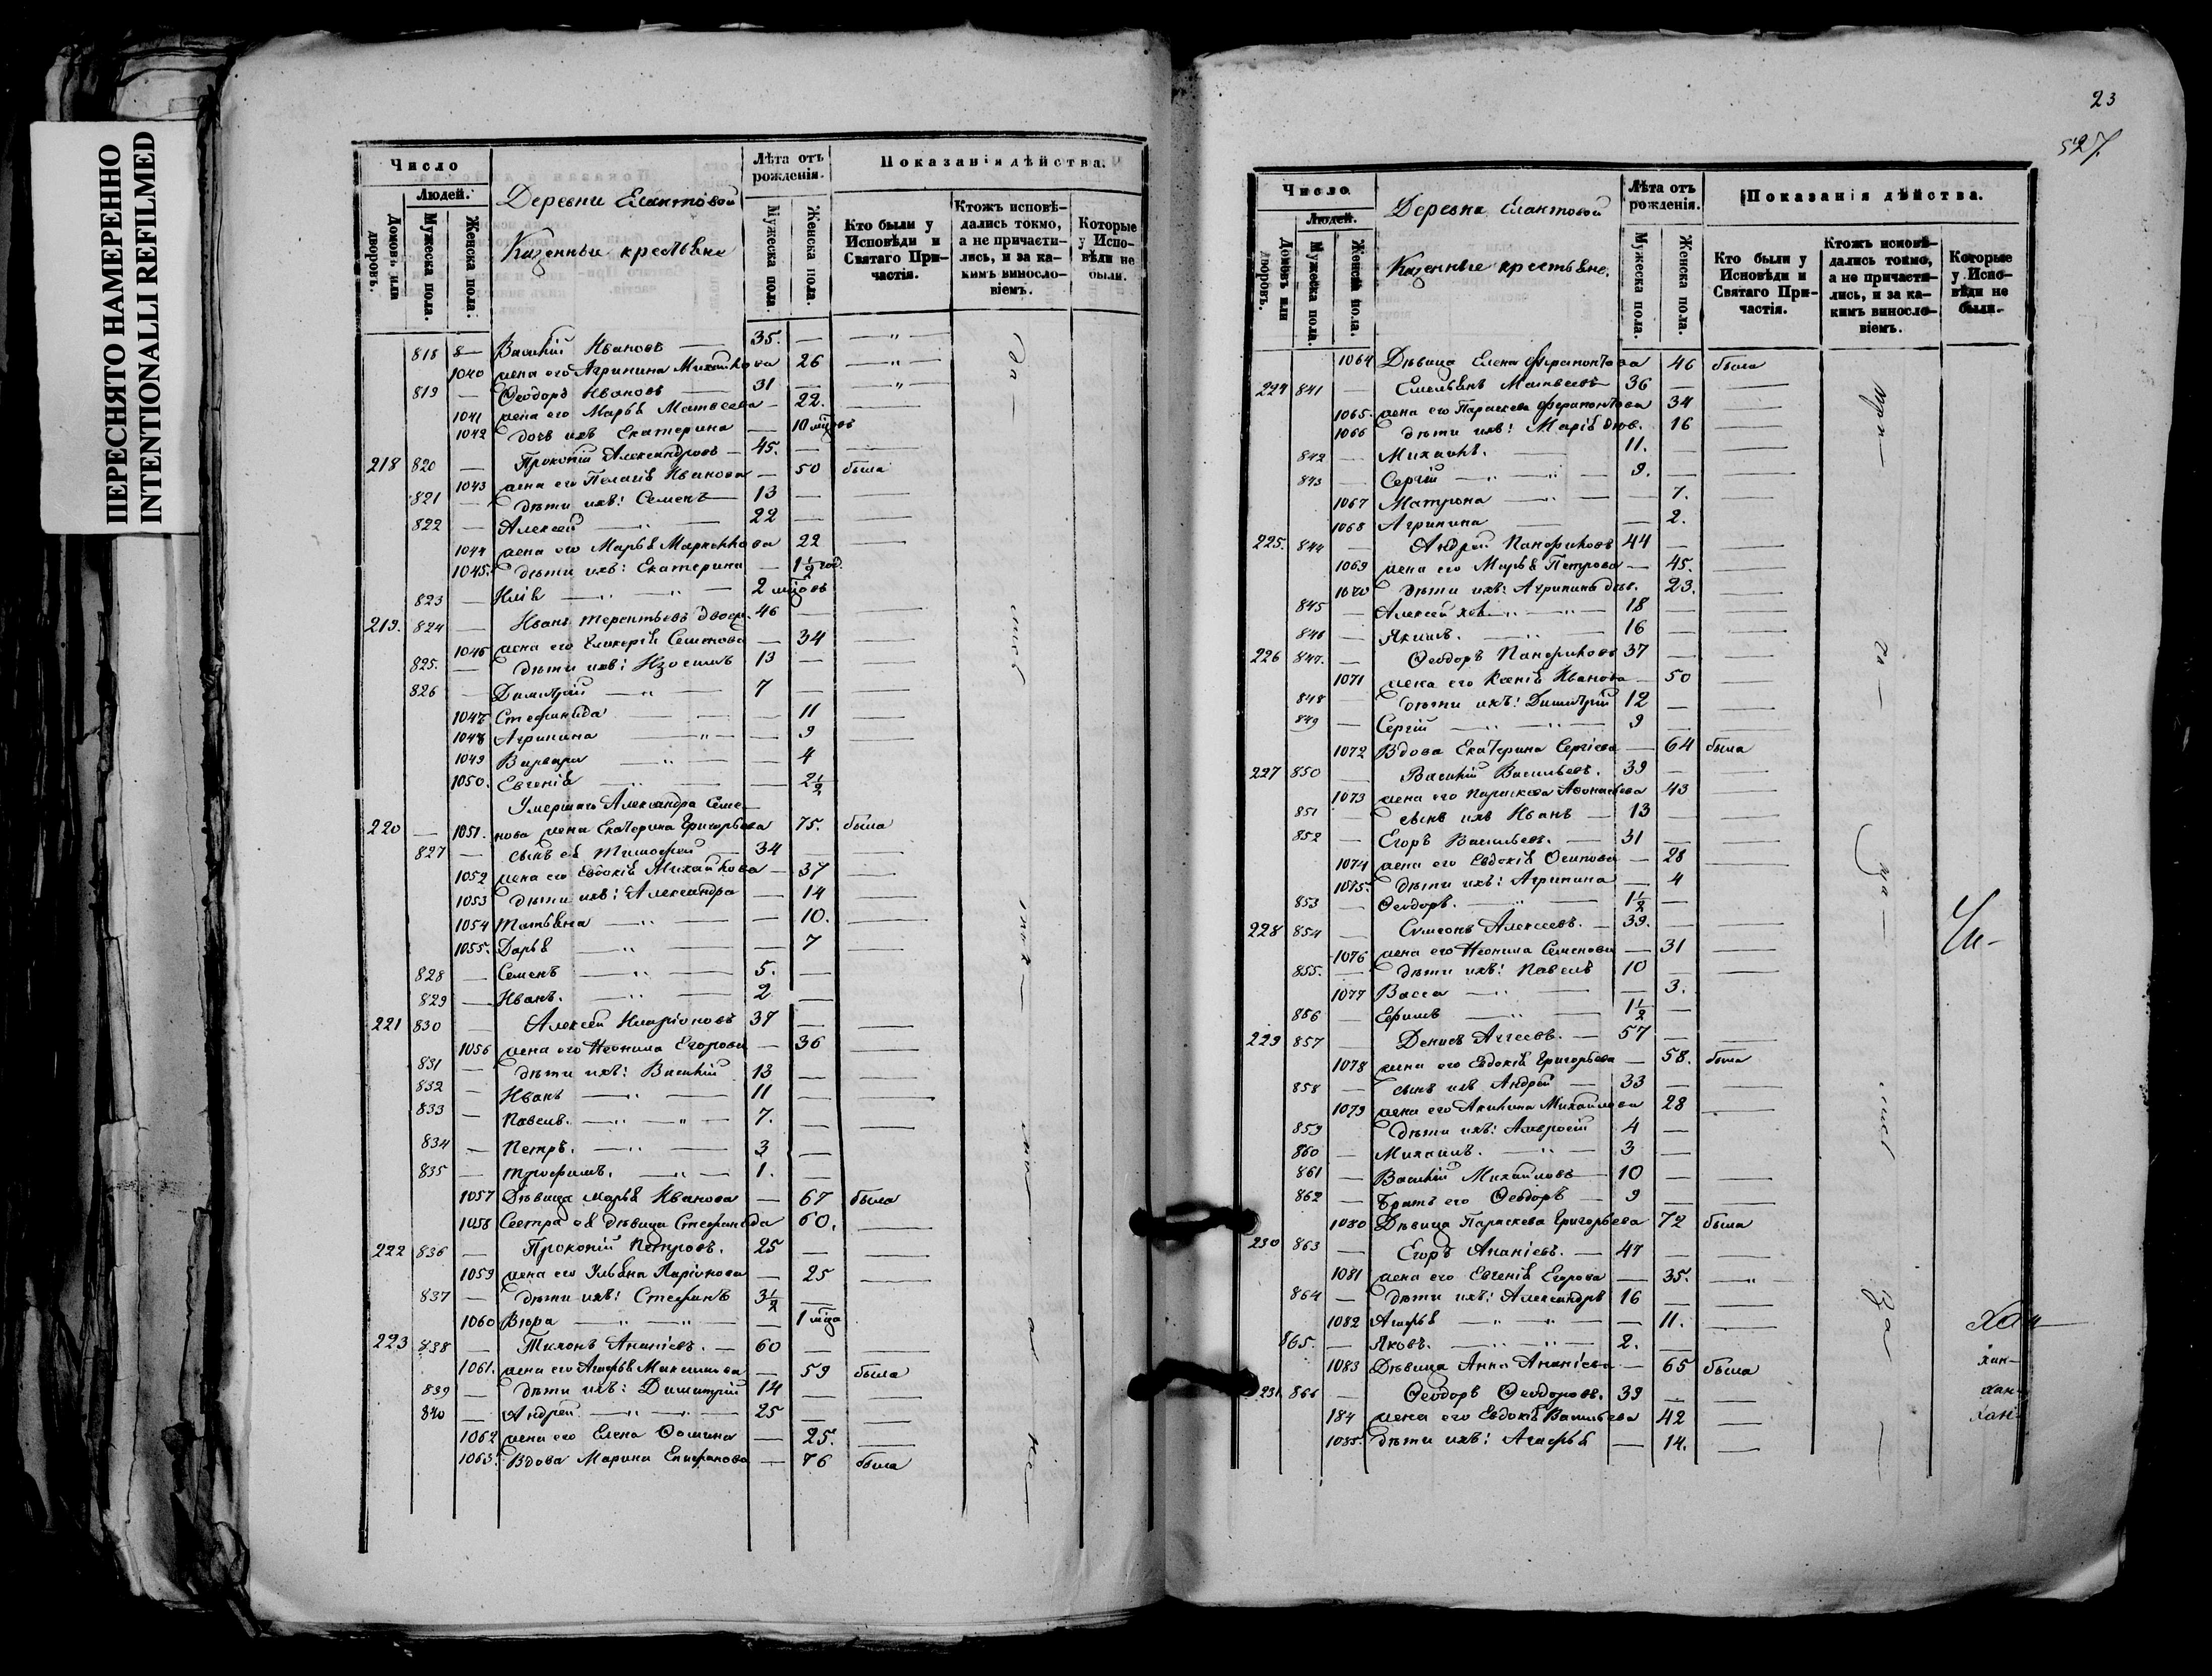 ПЕРЕСНЯТО НАМЕРЕННО
INTENTIONALLI REFILMED
Число
Людей.
Домовъ или дворовъ.
Мужеска пола.
Женска пола.
Деревни Елантовой
Казенные крестьяне
Лѣта отъ рожденія.
Мужеска пола
Женска пола.
Показанія дѣйства.
Кто были у Исповѣди и Святаго Причастія.
Ктожъ исповѣдались токмо, а не причастились, и за какимъ винословіемъ.
Которые у Исповѣди не были.
818 Василій Ивановъ 35.
1040 жена его Агрипина Михайлова 26
819 — Ѳеодоръ Ивановъ 31
1041 жена его Марья Матвеева 22.
1042 дочь ихъ Екатерина 10 мцовъ
218 820 — Прокопій Александровъ 45.
1043 жена его Пелагія Иванова 50 была
821 — дѣти ихъ: Семенъ 13
822 — Алексей 22
1044 жена его Марья Маркелова 22
1045. дѣти ихъ: Екатерина 1½ год.
823 — Илія 2 мцовъ
219. 824 — Иванъ Терентьевъ 46
1046 жена его Гликерія Семенова 34
825. — дѣти ихъ: Изосимъ 13
826 — Димитрій 7
1047 Стефанида 11
1048 Агрипина 9
1049 Варвара 4
1050. Евгенія 2½
Умершаго Александра Семе-
220 — 1051. нова жена Екатерина Григорьева 75. была
827 — сынъ ея Тимофей 34
1052 жена его Евдокія Михайлова 37
1053 дѣти ихъ: Александра 14
1054 Татьяна 10.
1055. Дарья 7
828 — Семенъ 5.
829 — Иванъ. 2
221 830 — Алексей Иларіоновъ 37
1056 жена его Неонила Егорова 36
831 — дѣти ихъ: Василій 13
832 — Иванъ 11
833 — Павелъ. 7.
834 — Петръ. 3
835 — Трофимъ. 1.
1057 Дѣвица Марья Иванова 67 была
1058 Сестра ея дѣвица Стефанида 60.
222 836 — Прокопій Петровъ. 25
1059 жена его Ульяна Ларіонова 25
837 — дѣти ихъ: Стефанъ 3½
1060 Вѣра 1 мца
223 838 — Тихонъ Ананіевъ. 60
1061. жена его Агафья Максимова 59 была
839 — дѣти ихъ: Димитрій 14
840 — Андрей 25
1062 жена его Елена Ѳомина 25.
1063. Вдова Марина Епифанова 76 была
23
527.
Число
Людей.
Домовъ или дворовъ.
Мужеска пола.
Женска пола.
Деревня Елантовой
Казенные крестьяне.
Лѣта отъ рожденія.
Мужеска пола
Женска пола.
Показанія дѣйства.
Кто были у Исповѣди и Святаго Причастія.
Ктожъ исповѣдались токмо, а не причастились, и за какимъ винословіемъ.
Которые у Исповѣди не были.
1064 Дѣвица Елена Ферапонтова 46 была
224 841 — Емельянъ Матвеевъ 36
1065. жена его Параскева Ферапонтова 34
1066 дѣти ихъ: Марія дѣв. 16
842 — Михаилъ. 11.
843 — Сергій 9.
1067 Матрона 7.
1068 Агрипина 2.
225. 844 — Андрей Панфиловъ 44
1069 жена его Марья Петрова 45.
1070 дѣти ихъ: Агрипина дѣв. 23.
845 — Алексей 18
846 — Якимъ. 16
226 847. — Ѳеодоръ Панфиловъ 37
1071 жена его Ксенія Иванова 50
848 — дѣти ихъ: Димитрій 12
849 — Сергій 9
1072 Вдова Екатерина Сергіева 64 была
227 850 — Василій Васильевъ. 39
1073 жена его Параскева Афонасьева 43
851 — сынъ ихъ Иванъ 13
852 — Егоръ Васильевъ. 31
1074 жена его Евдокія Осипова 28
1075. дѣти ихъ: Агрипина 4
853 — Ѳеодоръ. 1½
228 854 — Симеонъ Алексеевъ. 39.
1076 жена его Неонила Семенова 31
855. — дѣти ихъ: Павелъ 10
1077 Васса 3.
856 — Ефимъ 1½
229 857 — Денисъ Аггеевъ. 57
1078 жена его Евдокія Григорьева 58. была
858 — сынъ ихъ Андрей 33
1079 жена его Акилина Михайлова 28
859 дѣти ихъ: Амвросій 4
860 — Михаилъ. 3
861 — Василій Михайловъ 10
862 — Братъ его Ѳеодоръ 9
1080 Дѣвица Параскева Григорьева 72 была
230 863 — Егоръ Ананіевъ. 47
1081 жена его Евгенія Егорова 35.
864 — дѣти ихъ: Александръ 16
1082 Агафья 11.
865. — Яковъ. 2.
1083 Дѣвица Анна Ананіева 65 была
231 866 — Ѳеодоръ Ѳеодоровъ. 39
184 жена его Евдокія Васильева 42
1085. дѣти ихъ: Агафья 14.